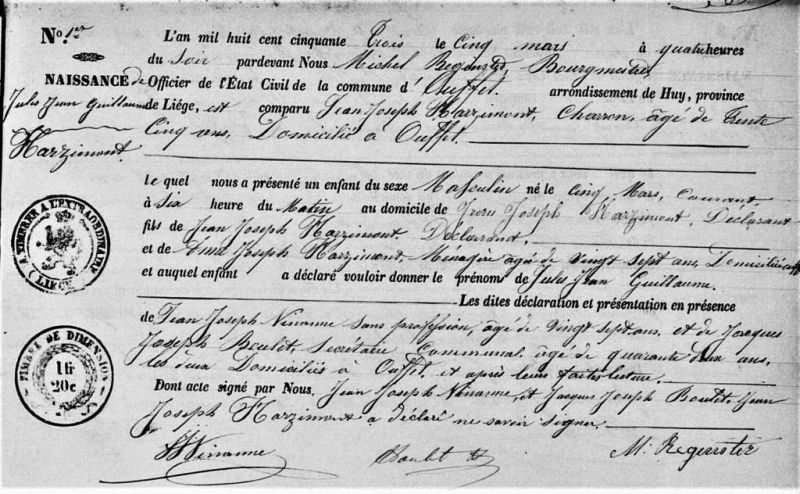 No. 1er
NAISSANCE de
Jules Jean Guillaume
Harzimont.
L'an mil huit cent cinquante Trois le Cinq mars à quatre heures
du Soir pardevant Nous Michel Bourgmestre,
Officier de l'État Civil de la commune d'Ouffet. arrondissement de Huy, province
de Liége, est comparu Jean Joseph Harzimont, Charron, âgé de Trente
Cinq ans, Domicilié à Ouffet.
le quel nous a présenté un enfant du sexe Masculin né le Cinq Mars, Courant,
à Six heure du Matin au domicile de Joseph Harzimont, Déclarant
fils de Jean Joseph Harzimont, Déclarant,
et de Joseph Harzimont, Menagère âgée de Vingt Sept ans, Domiciliée
et auquel enfant a déclaré vouloir donner le prénoms de Jules Jean Guillaume.
Les dites déclaration et présentation en présence
de Jean Joseph Ninanne sans profession, âgé de Vingt Sept ans, et de Jacques
Joseph Boulet, Secrétaire Communal âgé de quarante deux ans,
les deux Domiciliés à Ouffet, et après leurs faites lecture.
Dont acte signé par Nous, Jean Joseph Ninanne, et Jacques Joseph Boulet, Jean
Joseph Harzimont a déclaré ne savoir signer.
A TIMBRER A L'EXTRAORDINAIRE
(LIEGE)
TIMBRE DE DIMENSION
16
20c
Ninanne
Boulet
M.